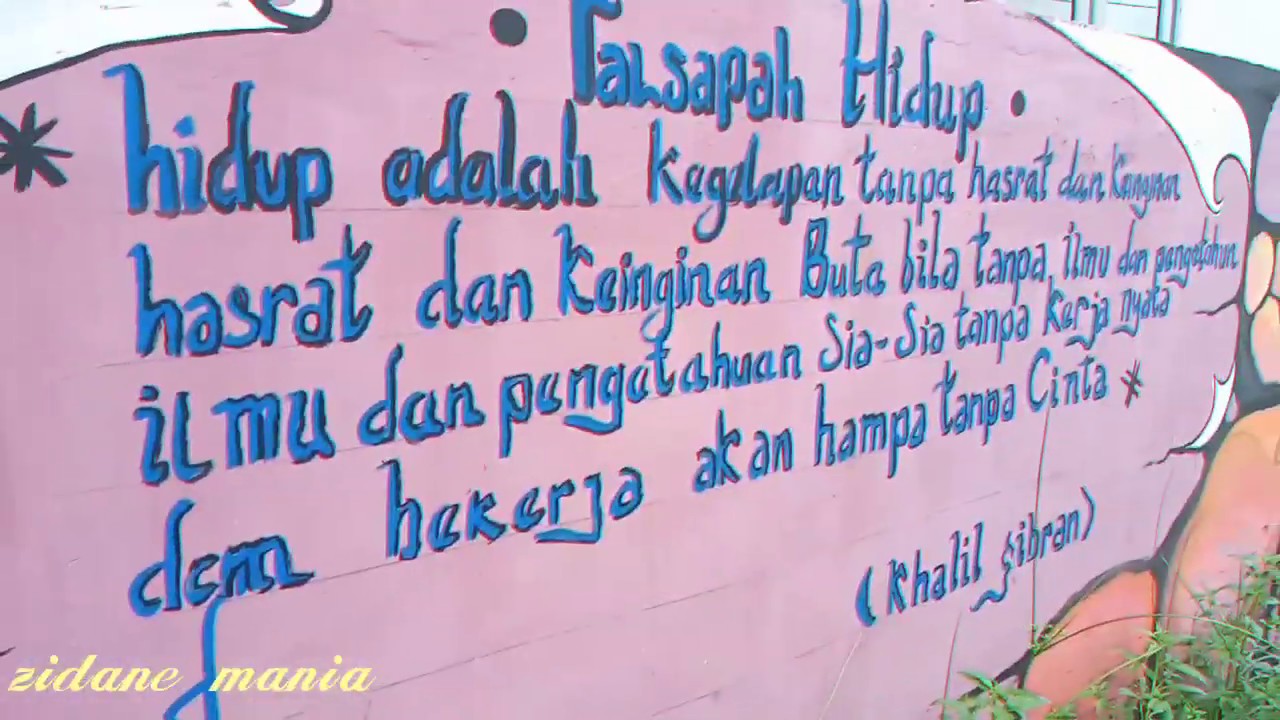 • Falsapah Hidup •
* hidup adalah kegelapan tanpa hasrat dan keinginan
hasrat dan keinginan Buta bila tanpa, ilmu dan pengetahun
ilmu dan pengetahuan Sia-Sia tanpa kerja nyata
dan bekerja akan hampa tanpa Cinta *
(Khalil gibran)
zidane mania